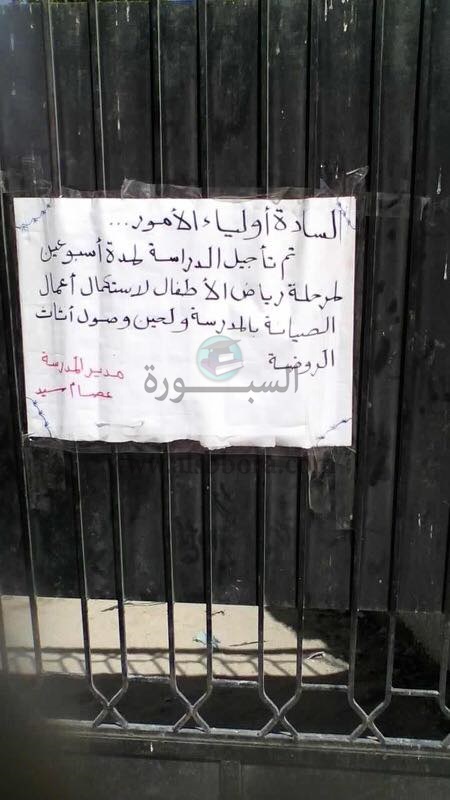 السادة أولياء الأمور...
تم تأجيل الدراسة لمدة أسبوعين
لمرحلة رياض الأطفال لاستكمال أعمال
الصيانة بالمدرسة ولحين وصول أثاث
الروضة
مدير المدرسة
عصام سيد
السبورة